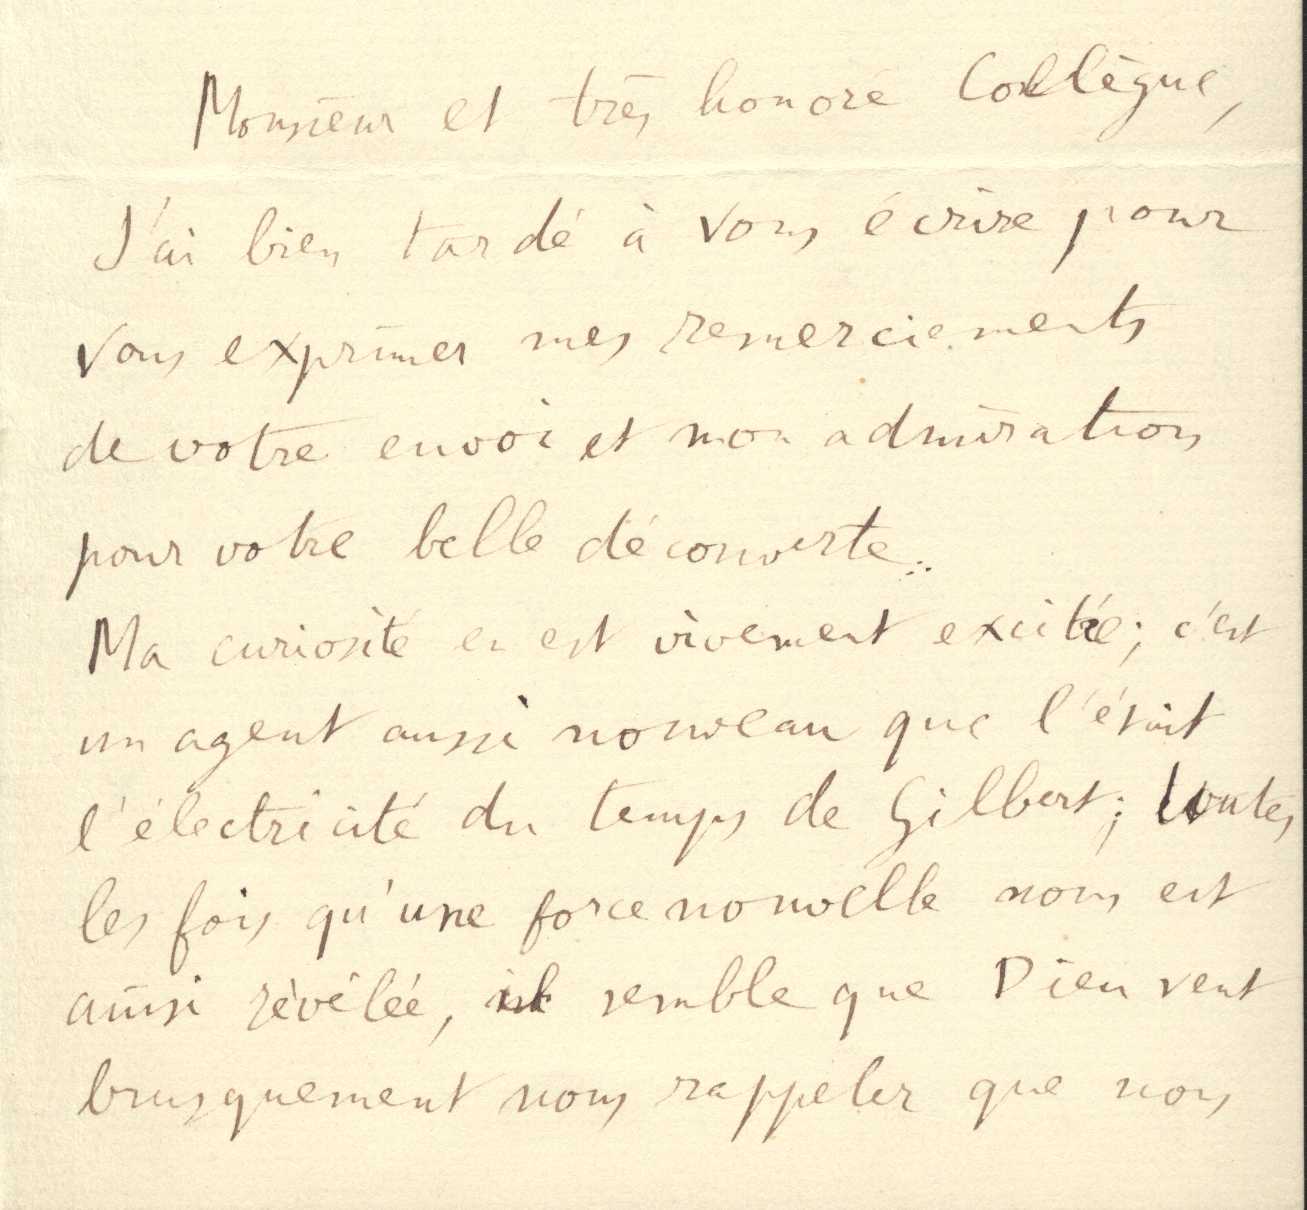 Monsieur et très honoré Collègue,
J'ai bien tardé à vous écrire pour
vous exprimer mes remerciements
de votre envoi et mon admiration
pour votre belle découverte..
Ma curiosité en est vivement excitée; c'est
un agent aussi nouveau que l'était
l'électricité du temps de Gilbert; toutes
les fois qu'une force nouvelle nous est
ainsi révélée, il semble que Dieu veut
brusquement nous rappeler que nous